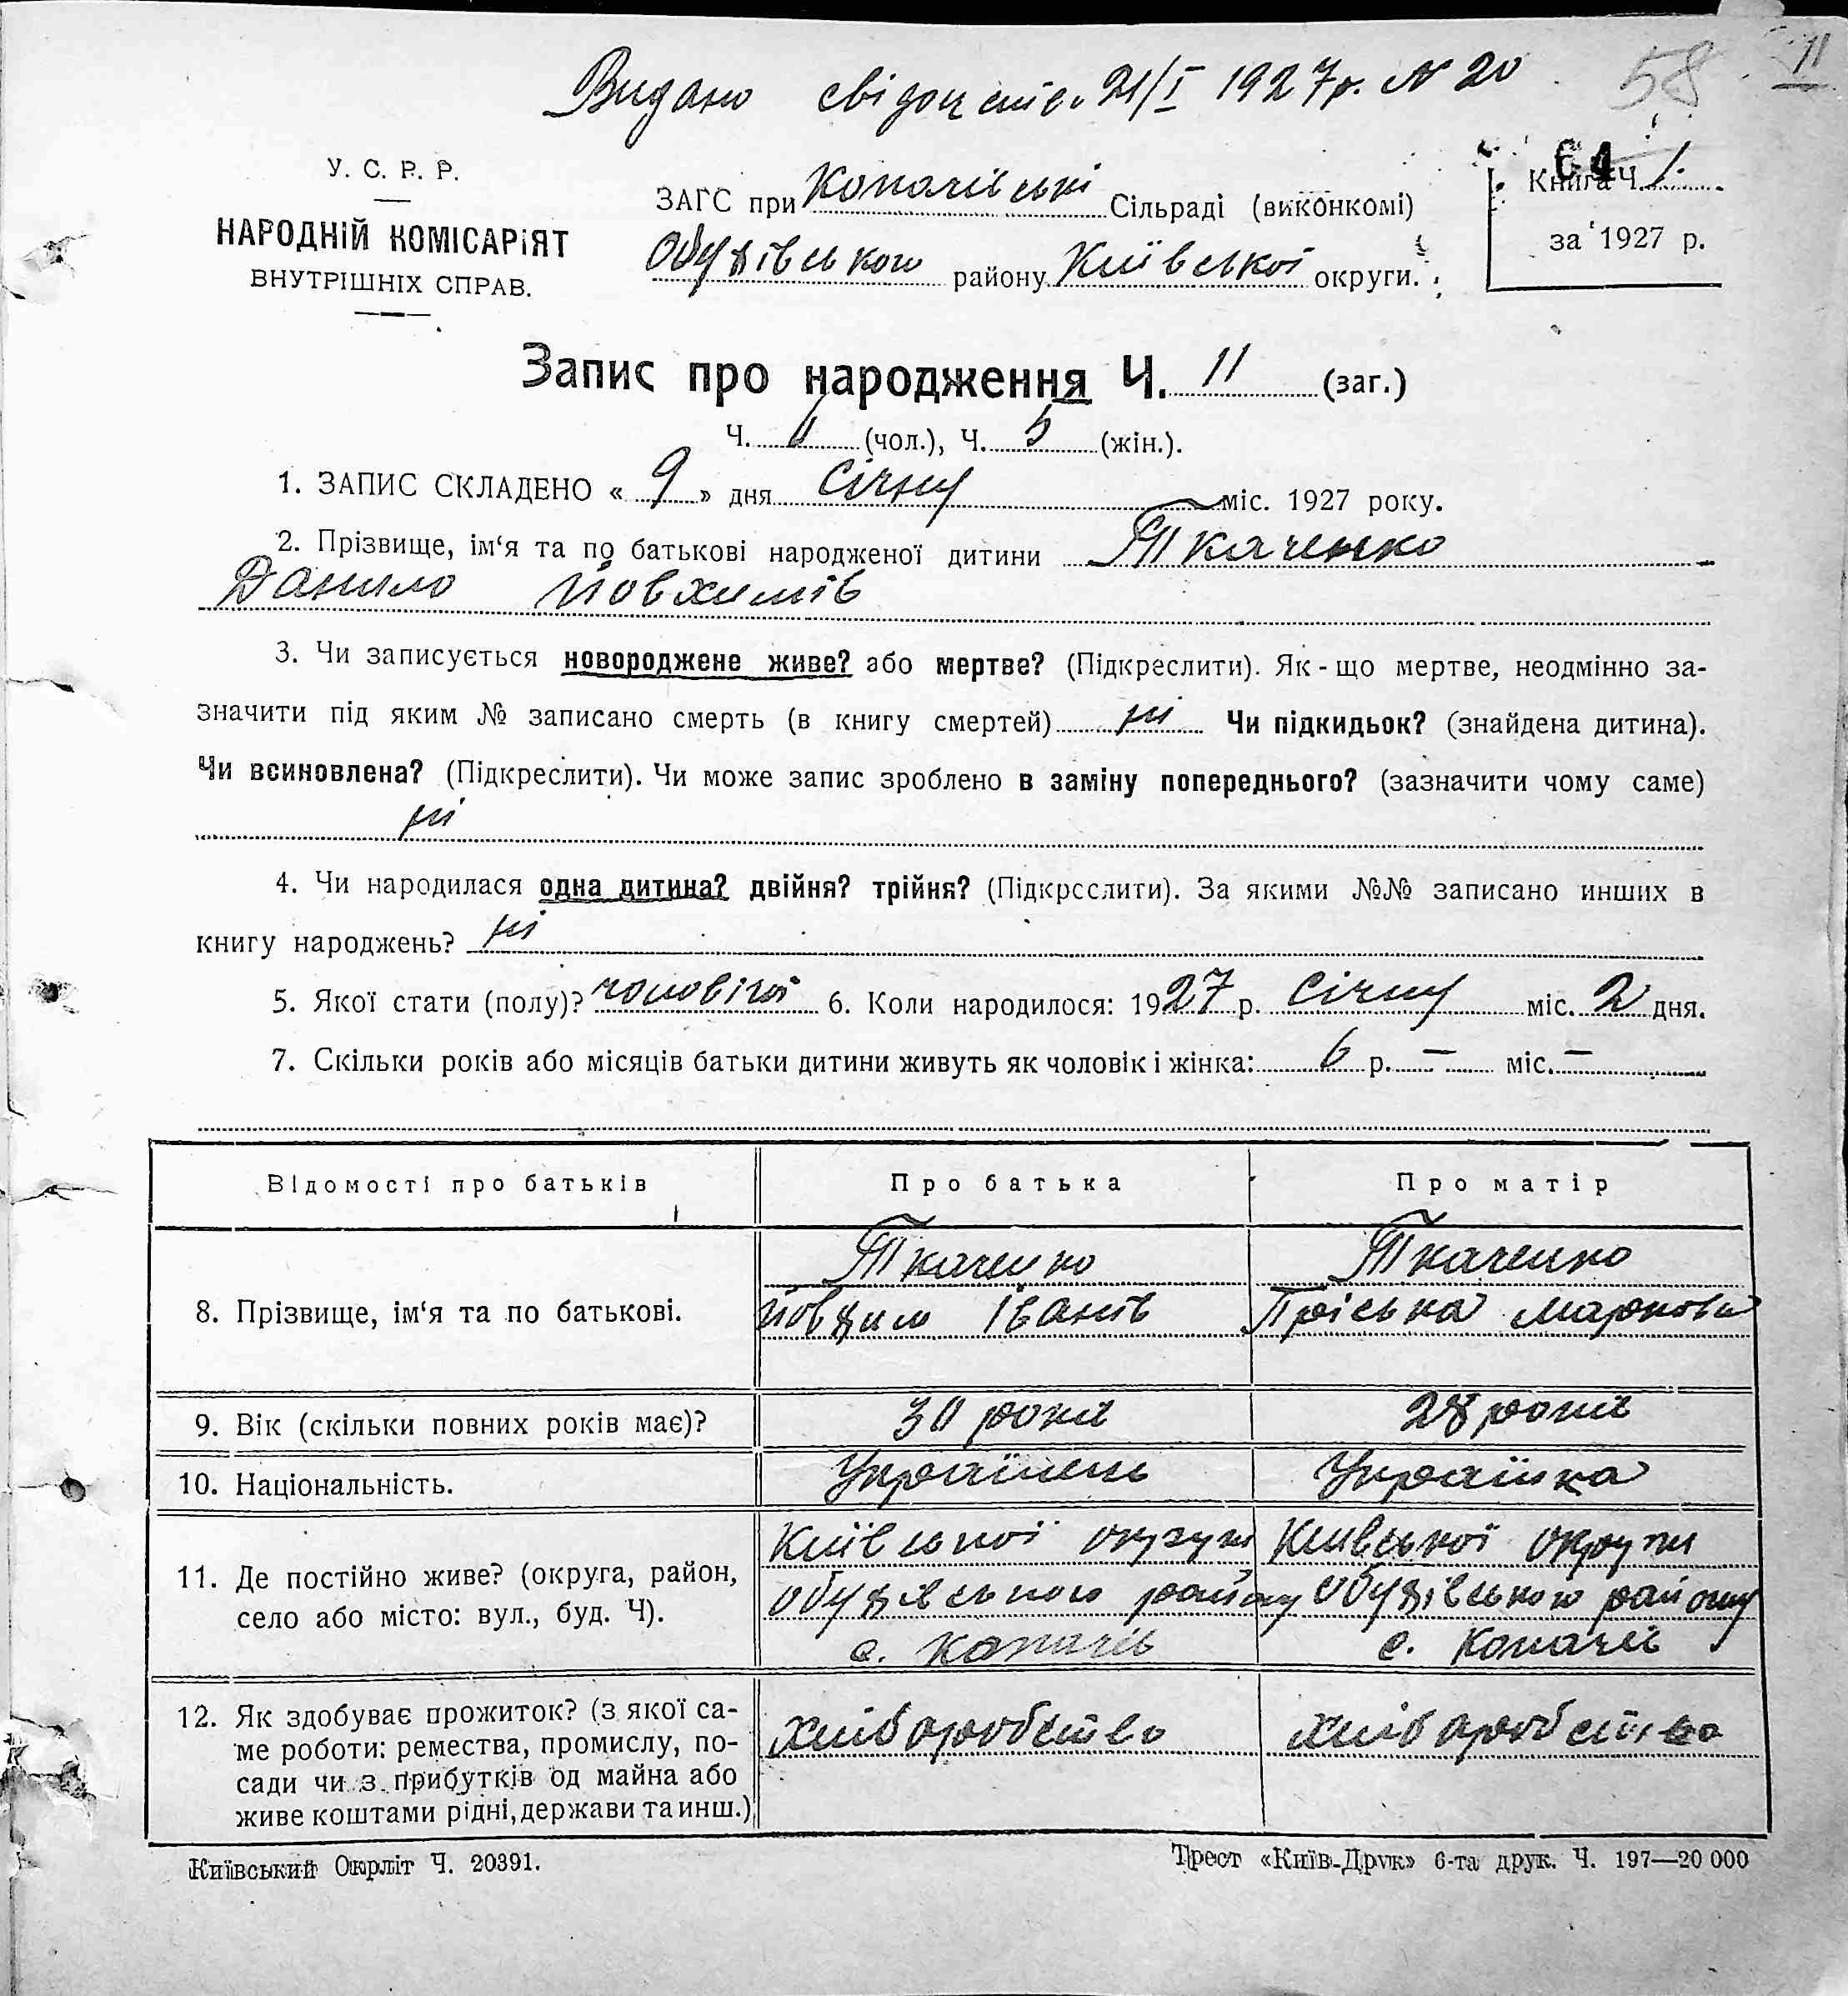 Видано свідоцтв. 21/I 1927р. N 20
58
11
У. С. Р. Р.
НАРОДНІЙ КОМІСАРІЯТ
ВНУТРІШНІХ СПРАВ.
ЗАГС при Копачівські Сільраді (виконкомі)
Обухівського району Київської округи.
64
Книга Ч. 1.
за 1927 р.
Запис про народження Ч. 11 (заг.)
Ч. 6 (чол.), Ч. 5 (жін.).
1. ЗАПИС СКЛАДЕНО « 9 » дня Січня міс. 1927 року.
2. Прізвище, ім‘я та по батькові народженої дитини Ткаченко
Данило Йовхимів
3. Чи записується новороджене живе? або мертве? (Підкреслити). Як-що мертве, неодмінно за-
значити під яким № записано смерть (в книгу смертей) ні Чи підкидьок? (знайдена дитина).
Чи всиновлена? (Підкреслити). Чи може запис зроблено в заміну попереднього? (зазначити чому саме)
ні
4. Чи народилася одна дитина? двійня? трійня? (Підкреслити). За якими №№ записано инших в
книгу народжень? ні
5. Якої стати (полу)? чоловічої 6. Коли народилося: 1927 р. Січня міс. 2 дня.
7. Скільки років або місяців батьки дитини живуть як чоловік і жінка: 6 р. — міс. —
Відомості про батьків Про батька Про матір
8. Прізвище, ім‘я та по батькові. Ткаченко Йовхим Іванів Ткаченко Пріська Маркова
9. Вік (скільки повних років має)? 30 років 28 років
10. Національність. Українець Українка
11. Де постійно живе? (округа, район,
село або місто: вул., буд. Ч).
Київської округи
Обухівського району
с. Копачів
Київської округи
Обухівського району
с. Копачів
12. Як здобуває прожиток? (з якої са-
ме роботи: ремества, промислу, по-
сади чи з прибутків од майна або
живе коштами рідні, держави та инш.)
хліборобство
хліборобство
Київський Окрліт Ч. 20391.
Трест «Київ-Друк» 6-та друк. Ч. 197—20 000